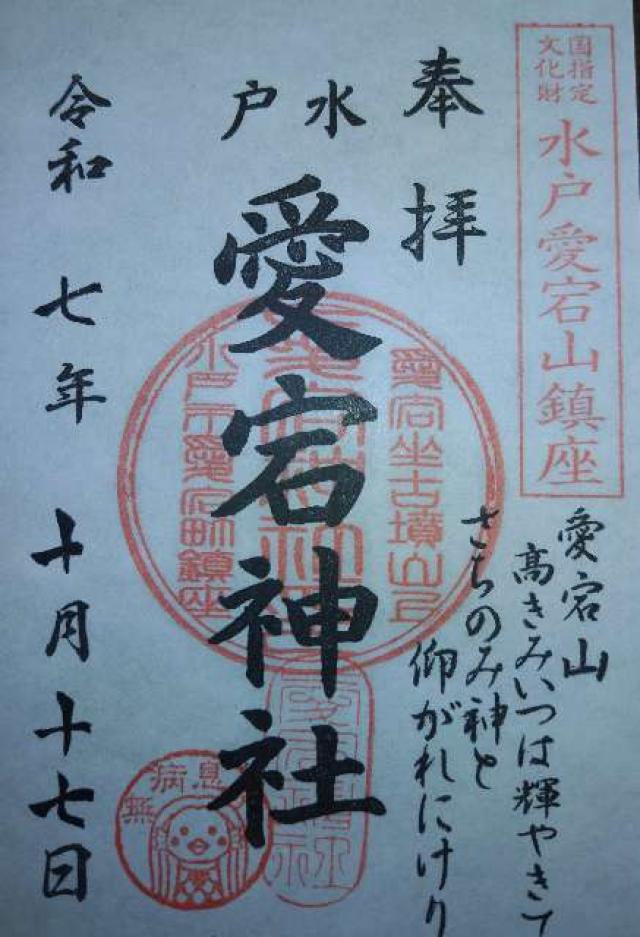 国指定
文化財
水戸愛宕山鎮座
奉拝
水戸
愛宕神社
愛宕山
高きみいつは輝やきて
さちのみ神と
仰がれにけり
愛宕坐古墳山上
愛宕神社
水戸市愛宕町鎮座
無病息
令和七年十月十七日